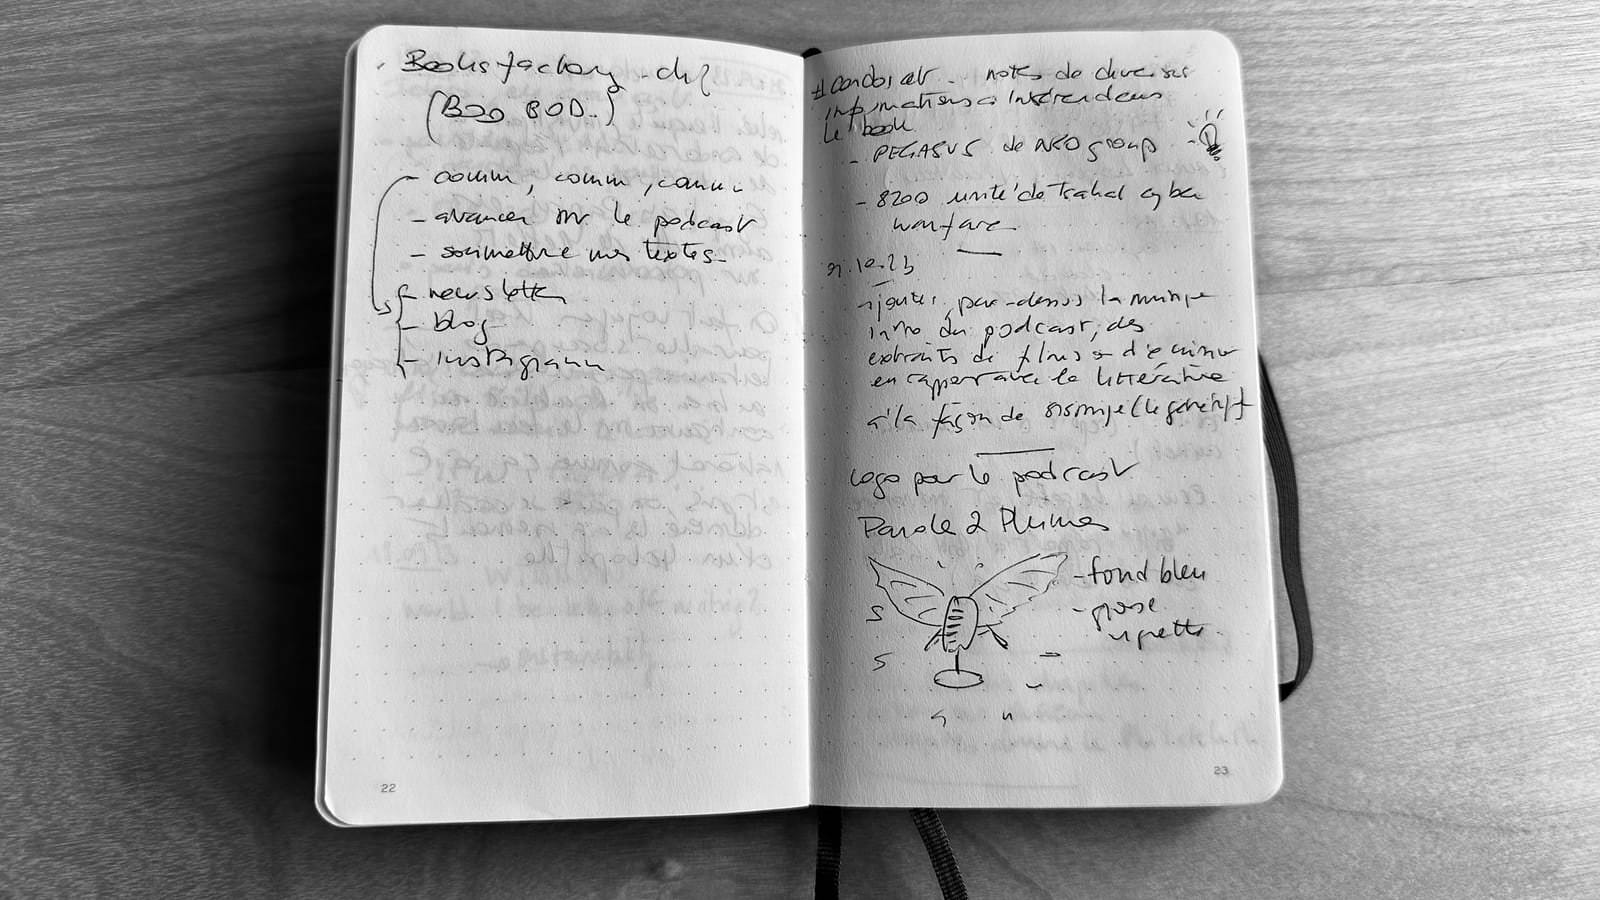 Books factory - ch?
(Boo BOD..)
- comm, comm, comm..
- avancer sur le podcast
- soumettre nos textes
- newsletter
- blog
- instagram
22
notes de diverses
informations à insérer dans
le book
- PEGASUS de NSO group
- 8200 unité de Tsahal cyber
warfare
.10.23
ajouter, par-dessus la musique
intro du podcast, des
extraits de films
en rapport avec la littérature
à la façon de (le générique
Logo pour le podcast
Parole 2 Plumes
- fond bleu
- grosse
vignette
S
S
23